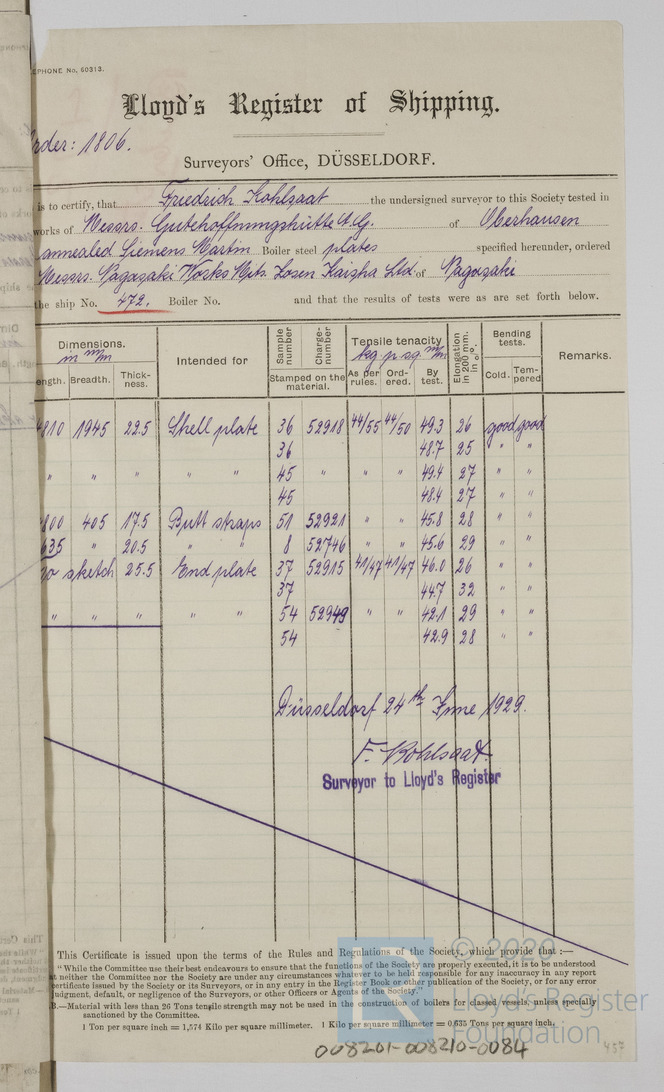 EPHONE No, 60313.
Lloyd's Register of Shipping.
rder: 1806.
Surveyors' Office, DÜSSELDORF.
is to certify, that Friedrich Kohlsaat the undersigned surveyor to this Society tested in
works of Messrs. Gutehoffnungshütte A.G. of Oberhausen
annealed Siemens Martin Boiler steel plates specified hereunder, ordered
Messrs. Nagasaki Works Mits. Zosen Kaisha Ltd. of Nagasaki
the ship No. 472. Boiler No. and that the results of tests were as are set forth below.
Dimensions. in m/m Intended for Sample number Charge-number Tensile tenacity kg p sq m/m Elongation in 200 mm. in %. Bending tests. Remarks.
ength. Breadth. Thick-ness. Stamped on the material. As per rules. Ord-ered. By test. Cold. Tem-pered
810 1945 22.5 Shell plate 36 52918 44/55 44/50 49.3 26 good good
36 48.7 25 " "
" " " " " 45 " " " 49.4 27 " "
45 48.4 27 " "
800 405 17.5 Butt straps 51 52921 " " 45.8 28 " "
635 " 20.5 " " 8 52746 " " 45.6 29 " "
to sketch 25.5 End plate 37 52915 41/47 41/47 46.0 26 " "
37 44.7 32 " "
" " " " " 54 52949 " " 42.1 29 " "
54 42.9 28 " "
Düsseldorf 24th June 1929.
F. Kohlsaat.
Surveyor to Lloyd's Register
This Certificate is issued upon the terms of the Rules and Regulations of the Society, which provide that :—
"While the Committee use their best endeavours to ensure that the functions of the Society are properly executed, it is to be understood
at neither the Committee nor the Society are under any circumstances whatever to be held responsible for any inaccuracy in any report
certificate issued by the Society or its Surveyors, or in any entry in the Register Book or other publication of the Society, or for any error
judgment, default, or negligence of the Surveyors, or other Officers or Agents of the Society."
B.—Material with less than 26 Tons tensile strength may not be used in the construction of boilers for classed vessels, unless specially
sanctioned by the Committee.
1 Ton per square inch = 1,574 Kilo per square millimetre. 1 Kilo per square millimetre = 0,635 Tons per square inch.
© 2020
Lloyd's Register
Foundation
008201-008210-0084
457